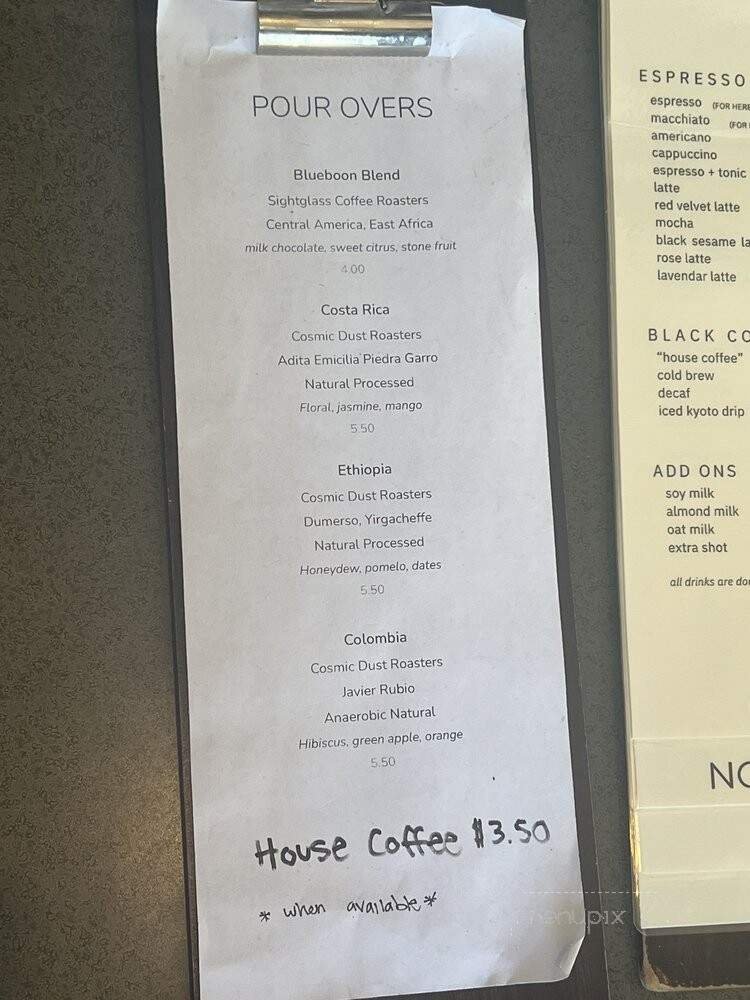 POUR OVERS
Blueboon Blend
Sightglass Coffee Roasters
Central America, East Africa
milk chocolate, sweet citrus, stone fruit
4.00
Costa Rica
Cosmic Dust Roasters
Adita Emicilia Piedra Garro
Natural Processed
Floral, jasmine, mango
5.50
Ethiopia
Cosmic Dust Roasters
Dumerso, Yirgacheffe
Natural Processed
Honeydew, pomelo, dates
5.50
Colombia
Cosmic Dust Roasters
Javier Rubio
Anaerobic Natural
Hibiscus, green apple, orange
5.50
House Coffee $3.50
* when available *
menupix
ESPRESSO
espresso (FOR HERE
macchiato (FOR
americano
cappuccino
espresso + tonic
latte
red velvet latte
mocha
black sesame la
rose latte
lavendar latte
BLACK CO
"house coffee"
cold brew
decaf
iced kyoto drip
ADD ONS
soy milk
almond milk
oat milk
extra shot
all drinks are do
NO